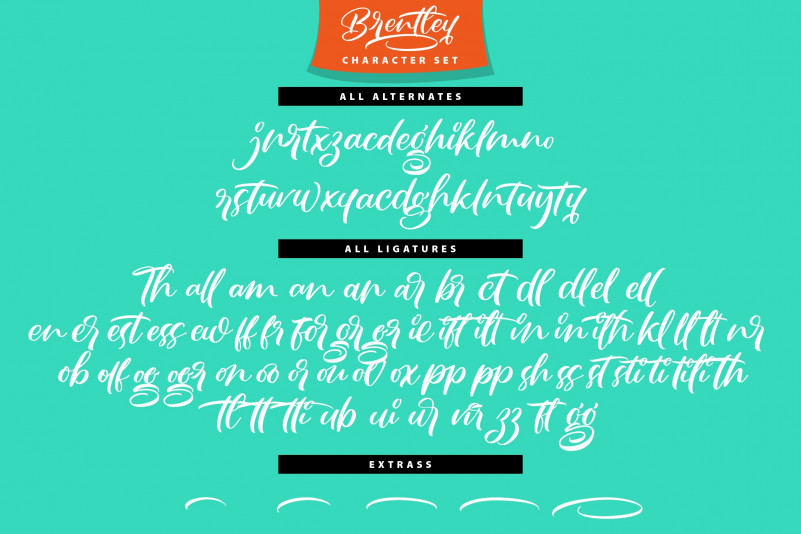 Brentley
CHARACTER SET
ALL ALTERNATES
jnrtxzacdeghiklmno
rsturwxyacdghklntuyty
ALL LIGATURES
Th all am an an ar br ct dl dlel ell
en er est ess ew ff fr For gr gr ie itt ilt in in ith kl ll lt nr
ob off og ogr on oo or ou ov ox pp pp sh ss st sti ti titi th
tl tt tti ub ui ur vr zz ft gg
EXTRASS